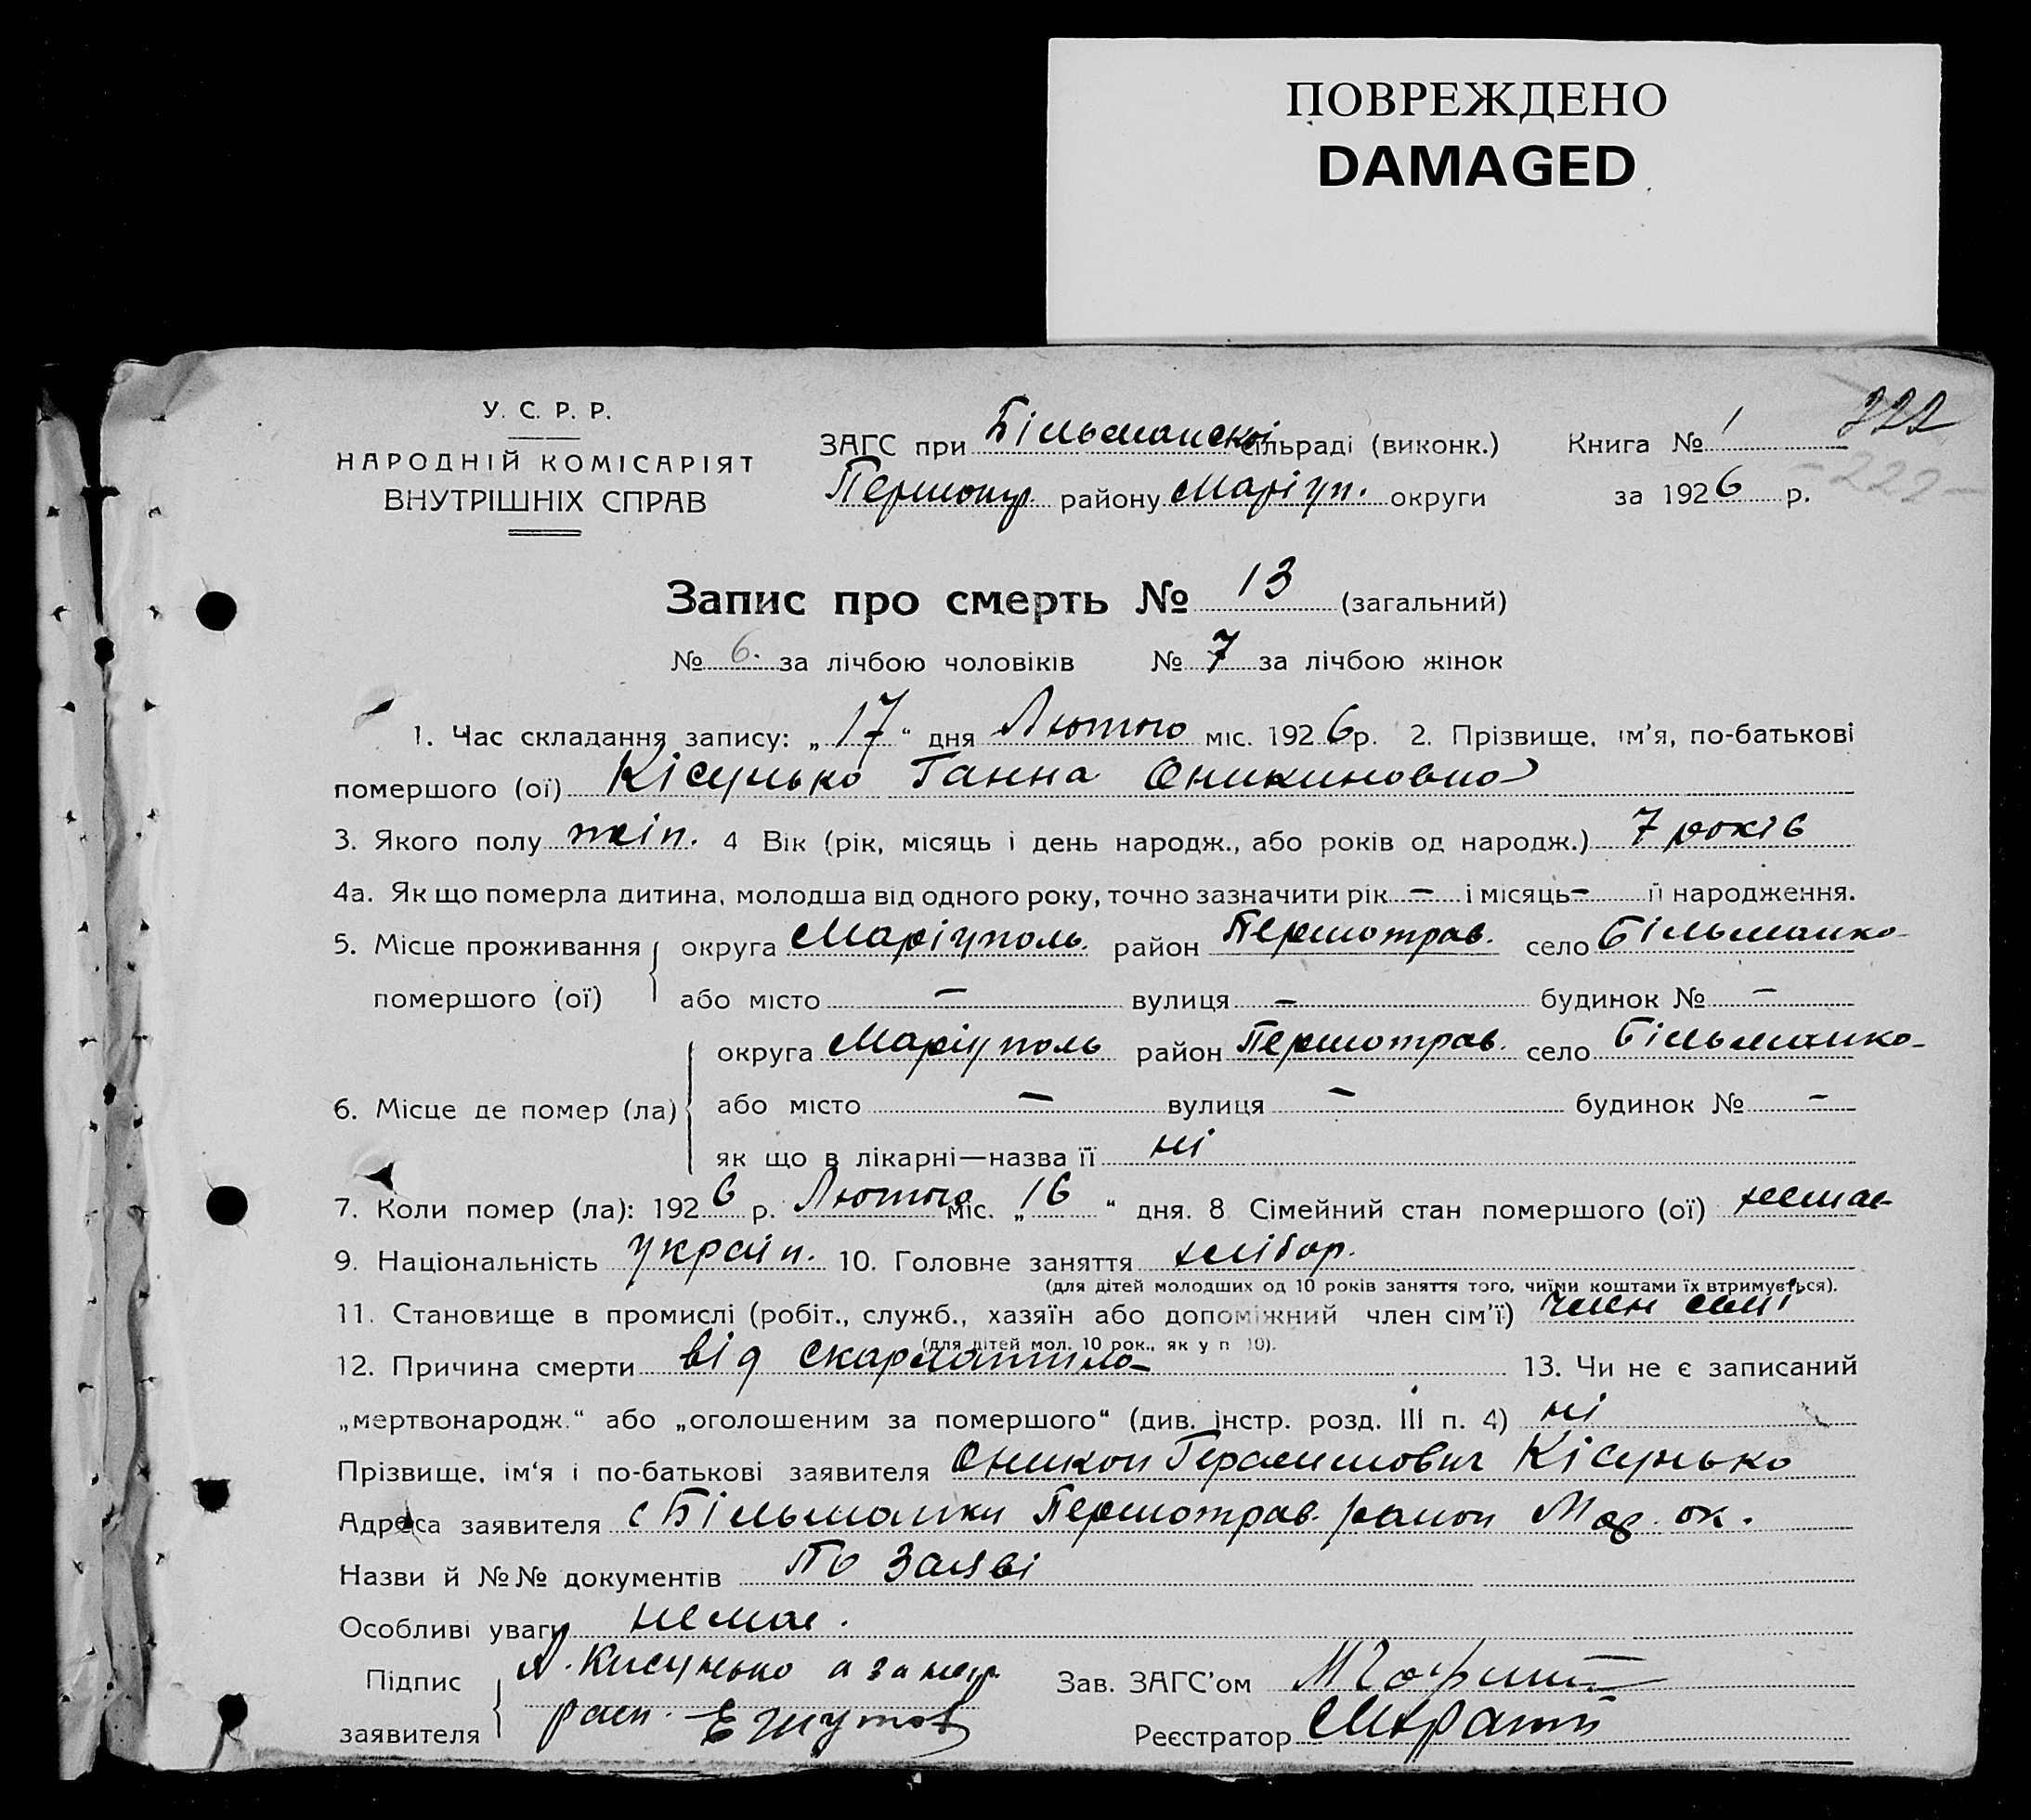 ПОВРЕЖДЕНО
DAMAGED
У. С. Р. Р.
НАРОДНІЙ КОМІСАРІЯТ
ВНУТРІШНІХ СПРАВ
ЗАГС при Більманскої сільраді (виконк.) Книга № 1 222
району Маріуп. округи за 1926 р. -222-
Запис про смерть № 13 (загальний)
№ 6. за лічбою чоловіків № 7 за лічбою жінок
1. Час складання запису: „17“ дня Лютого міс. 1926 р. 2. Прізвище, ім’я, по-батькові
помершого (ої) Кісунько Ганна Оникиновна
3. Якого полу жін. 4 Вік (рік, місяць і день народж., або років од народж.) 7 років
4а. Як що померла дитина, молодша від одного року, точно зазначити рік — і місяць — її народження.
5. Місце проживання округа Маріуполь. район Першотрав. село Більманка
помершого (ої) або місто — вулиця — будинок № —
округа Маріуполь район Першотрав. село Більманка
6. Місце де помер (ла) або місто — вулиця — будинок № —
як що в лікарні—назва її ні
7. Коли помер (ла): 1926 р. Лютого міс. „16“ дня. 8 Сімейний стан помершого (ої) немає
9. Національність україн. 10. Головне заняття хлібор.
(для дітей молодших од 10 років заняття того, чиїми коштами їх втримується).
11. Становище в промислі (робіт., служб., хазяїн або допоміжний член сім’ї) член семї
(для дітей мол. 10 рок., як у п 10).
12. Причина смерти від скарлатина 13. Чи не є записаний
„мертвонародж.“ або „оголошеним за помершого“ (див. інстр. розд. III п. 4) ні
Прізвище, ім‘я і по-батькові заявителя Оникон Герасимович Кісунько
Адреса заявителя с Більманки Першотрав. район Мар. ок.
Назви й №№ документів По Заяві
Особливі уваги немає.
Підпис А. Кисунько а за негр Зав. ЗАГС’ом
заявителя расп. Реєстратор